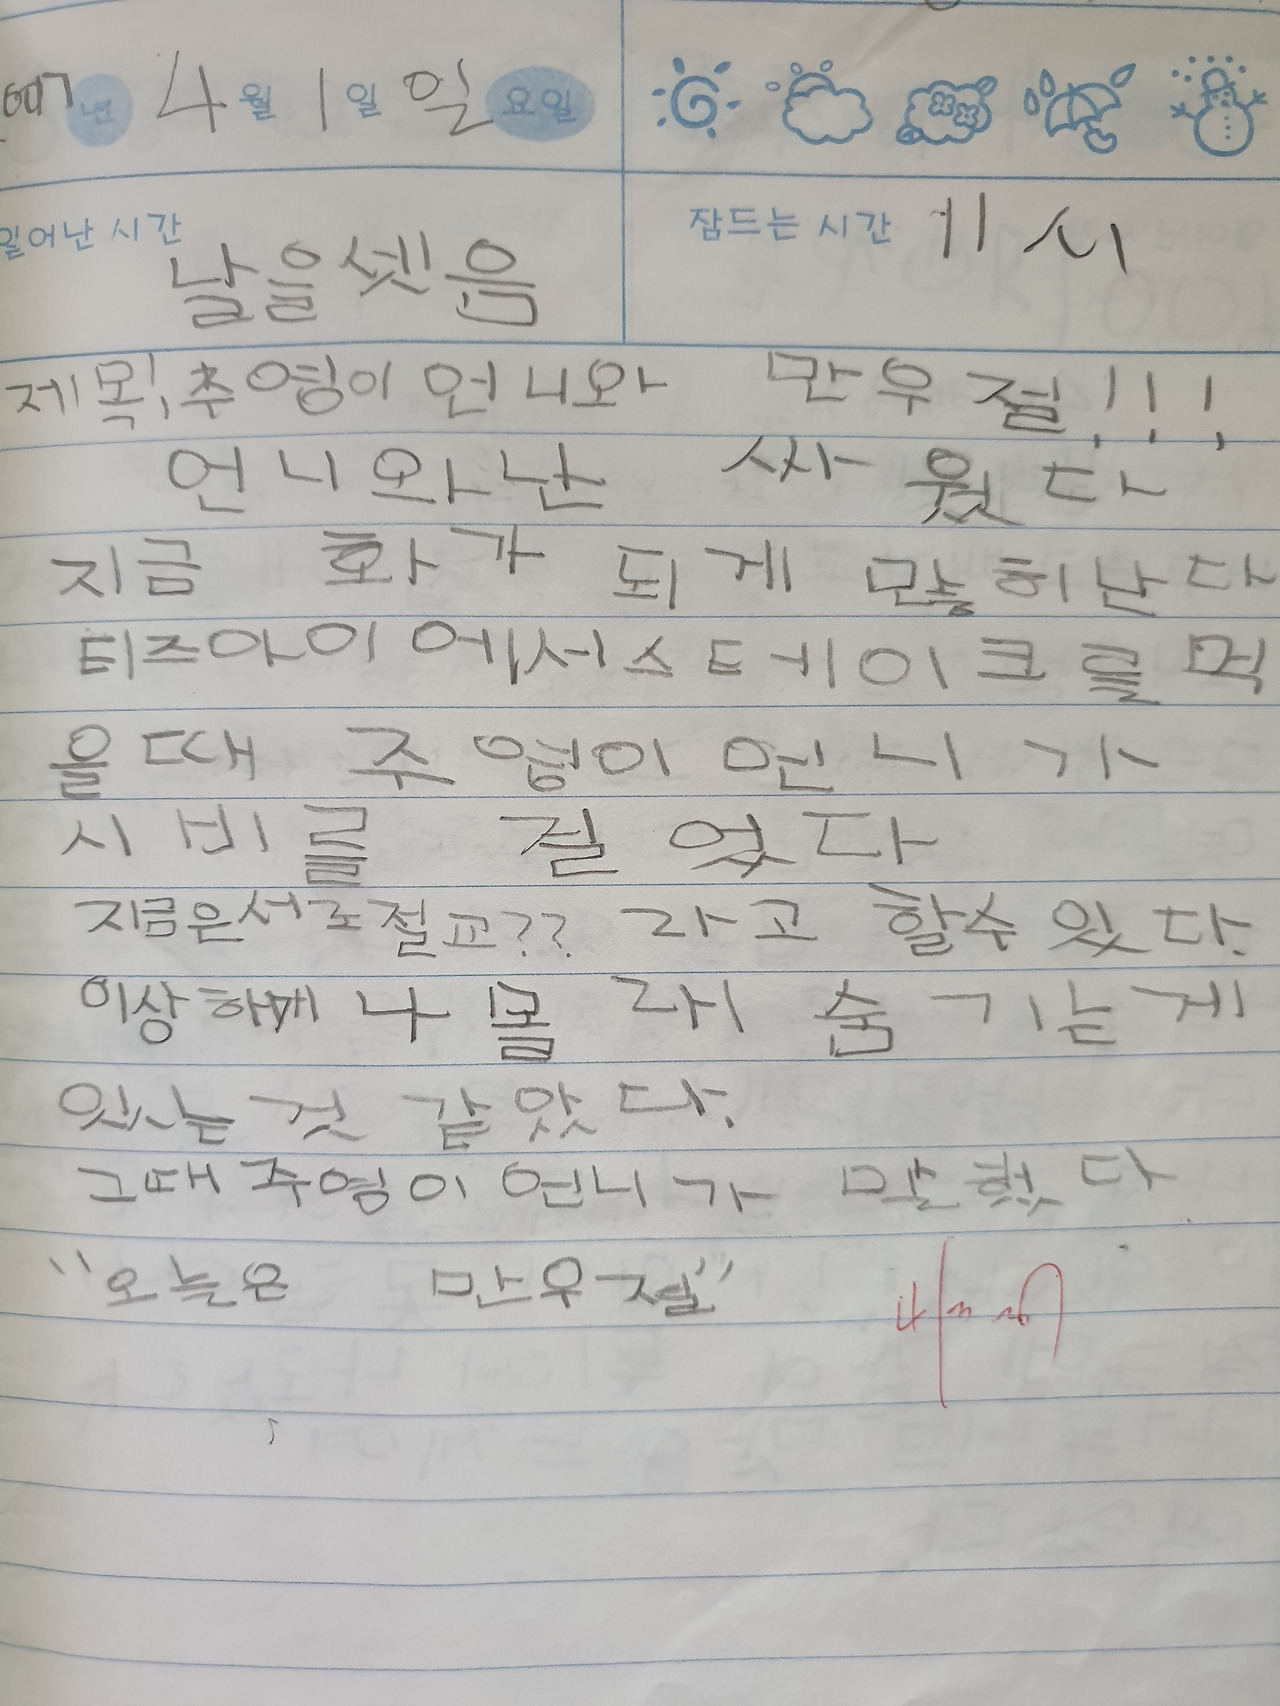 007년 4월 1일 일요일
일어난 시간 날을셋음 잠드는 시간 11시
제목: 주영이 언니와 만우절!!!
언니와난 싸웠다
지금 화가 되게 많히난다
티즈아이에서스테이크를먹
을때 주영이언니가
시비를 걸었다
지금은서로절교?? 라고 할수있다.
이상하게 나 몰래 숨기는게
있는것 같앗다.
그때 주영이 언니가 말헜다
"오늘은 만우절"